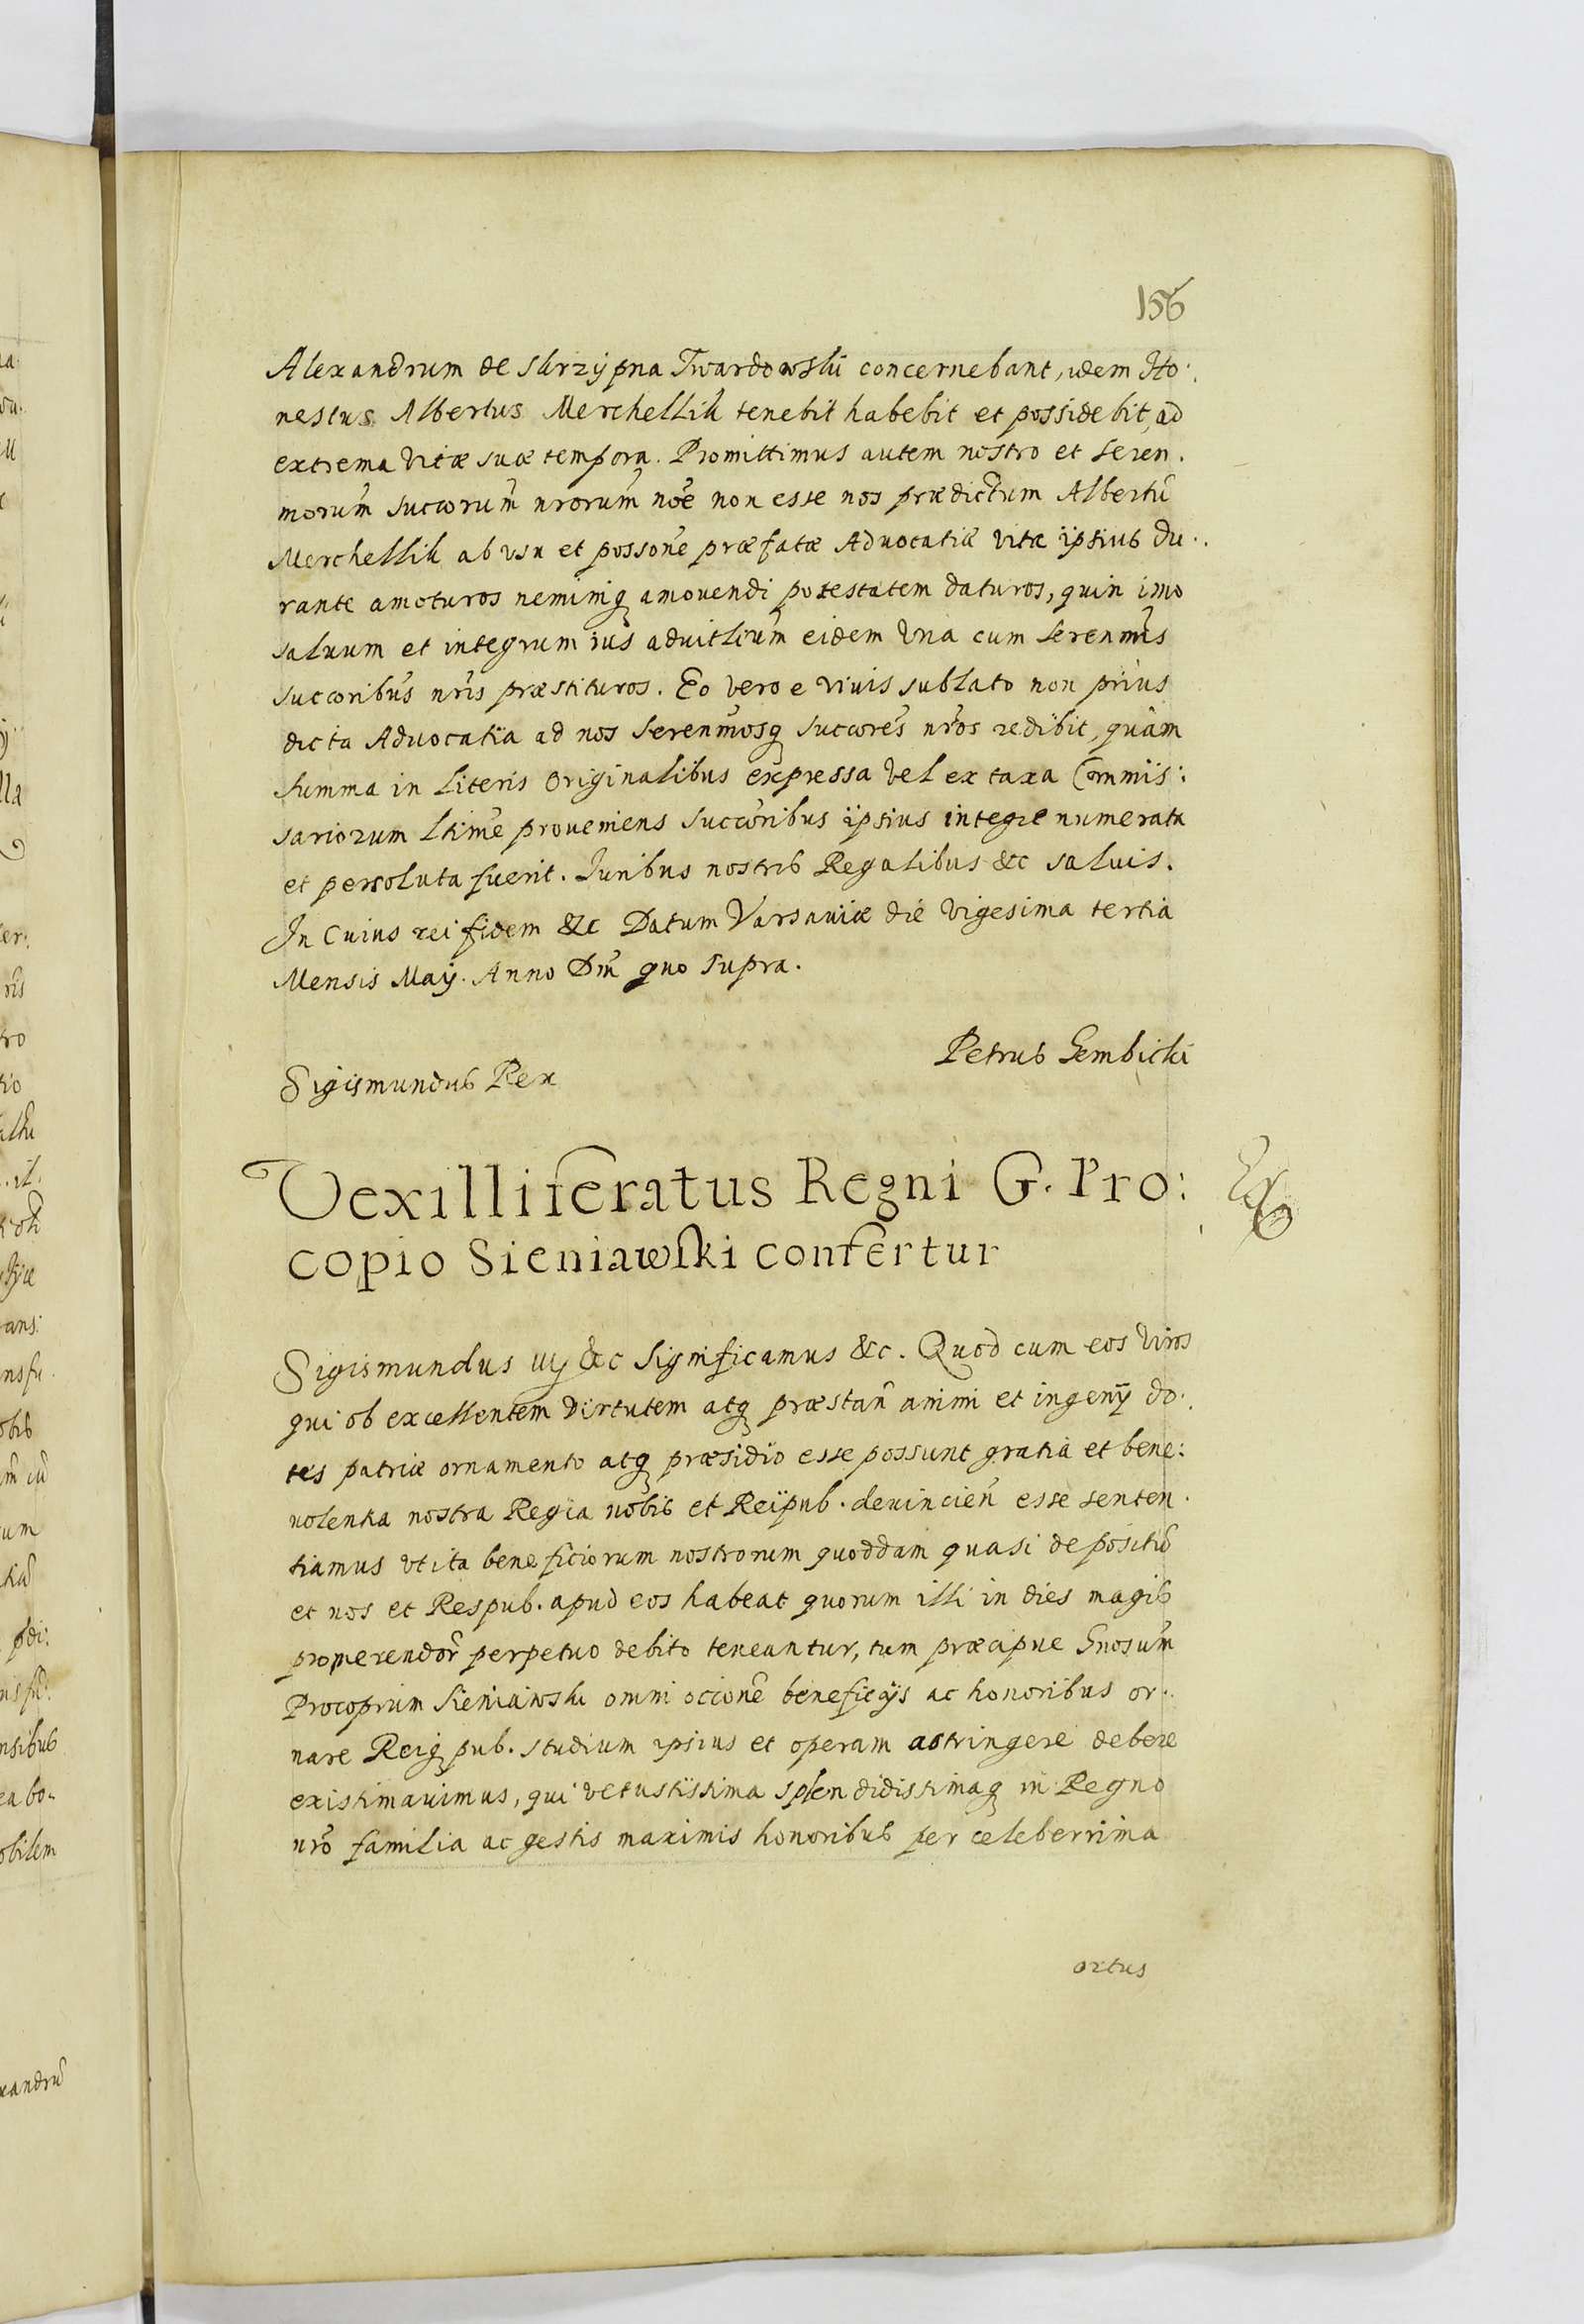 156
Alexandrum de Skrzypna Twardowski concernebant, idem Ho:
nestus Albertus Merchellik tenebit habebit et possidebit, ad
extrema vitæ suæ tempora. Promittimus autem nostro et Seren.
morum̃ succorum̃ nrorum̃ noẽ non esse nos prædictum Albertũ
Merchellik ab vsu et possonẽ præfatæ Aduocatiæ vita ipsius du.
rante amoturos neminiq̨ amouendi potestatem daturos, quin imo
saluum et integrum ius aduitlium̃ eidem vna cum Serenmis̃
succoribus̃ nrĩs præstituros. Eo vero e viuis sublato non prius
dicta Aduocatia ad nos Serenmosq̨ succores̃ nrõs redibit, quàm
summa in literis originalibus expressa vel ex taxa Commis:
sariorum ltimẽ proueniens succoribus̃ ipsius integre numerata
et persoluta fuerit. Iuribus nostris Regalibus &c saluis.
In Cuius rei fidem &c Datum Varsauiæ die vigesima tertia
Mensis Maÿ. Anno Dm̃ quo supra.
Petrus Gembicki
Sigismundus Rex
Vexilliferatus Regni G. Pro:
copio Sieniawski confertur
Sigismundus iij &c Significamus &c. Quod cum eos viros
qui ob excellentem virtutem atq̨ præstañ animi et ingenÿ do.
tes patriæ ornamento atq̨ præsidio esse possunt gratia et bene:
uolentia nostra Regia nobis et Reipub. deuincieñ esse senten.
tiamus vt ita beneficiorum nostrorum quoddam quasi depositũ
et nos et Respub. apud eos habeat quorum illi in dies magis
promerendor̃ perpetuo debito teneantur, tum præcipue Gnosum̃
Procopium Sieniawski omni ocionẽ beneficÿs ac honoribus or.
nare Reiq̨ pub. studium ipsius et operam astringere debere
existimauimus, qui vetustissima splendidissimaq̨ in Regno
nrõ familia ac gestis maximis honoribus per celeberrima
ortus